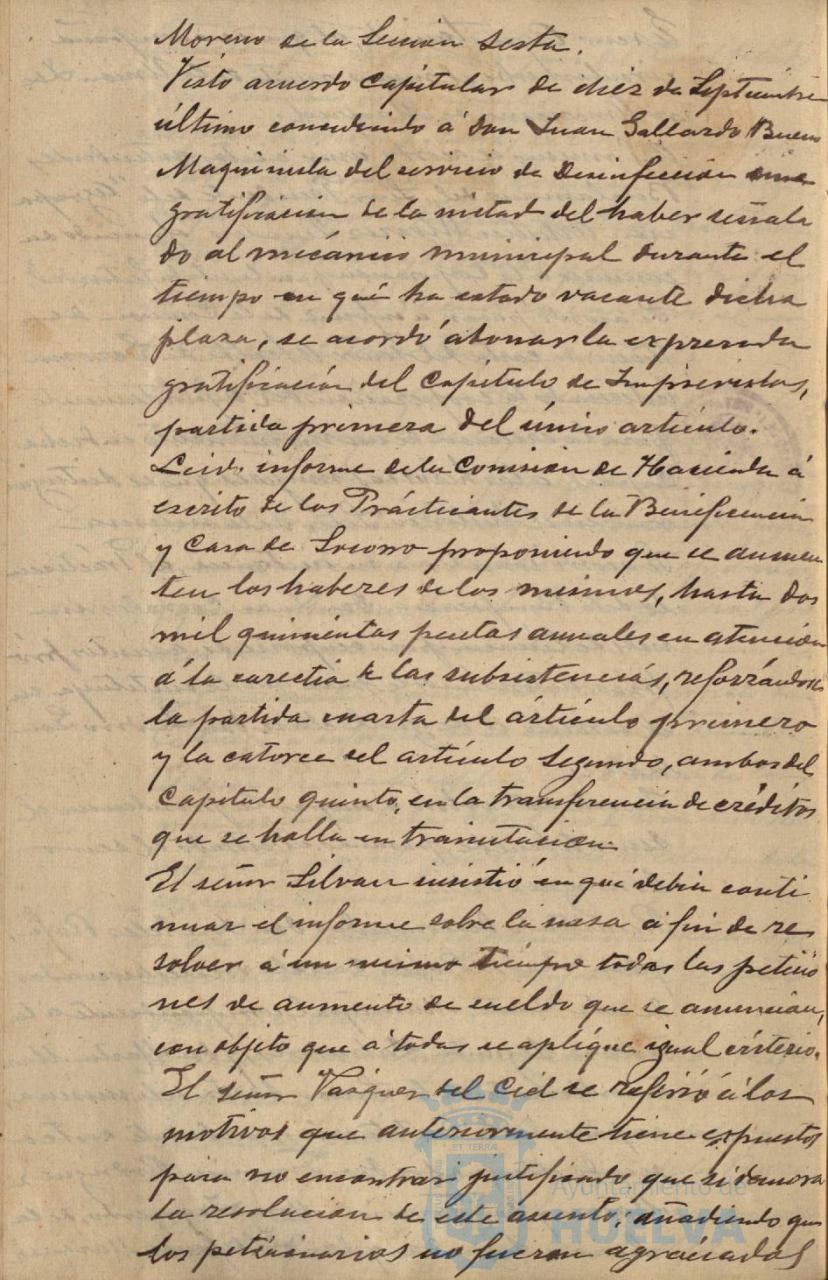 Moreno de la Sección Sesta.
Visto acuerdo capitular de diez de Septiembre
último concediendo á don Juan Gallardo Bueno
Maquinista del servicio de Desinfección una
gratificación de la mitad del haber señala
do al mecánico municipal durante el
tiempo en qué ha estado vacante dicha
plaza, se acordó abonar la expresada
gratificación del Capítulo de Imprevistos,
partida primera del único artículo.
Leido informe de la Comisión de Hacienda á
escrito de los Practicantes de la Beneficencia
y Casa de Socorro proponiendo que se aumen
ten los haberes de los mismos, hasta dos
mil quinientas pesetas anuales en atención
á la carestia de las subsistencias, reforzándose
la partida cuarta del artículo primero
y la catorce del artículo segundo, ambos del
Capítulo quinto, en la transferencia de créditos
que se halla en tramitación.
El señor Silvan insistió en qué debia conti
nuar el informe sobre la mesa á fin de re
solver á un mismo tiempo todas las peticio
nes de aumento de sueldo que se anuncian,
con objeto que á todas se aplique igual criterio.
El señor Vazquez del Cid se refirió á los
motivos que anteriormente tiene expuestos
para no encontrar justificado que se demora
la resolución de este asunto, añadiendo que
los peticionarios no fueron agraciados
Ayuntamiento de
HUELVA